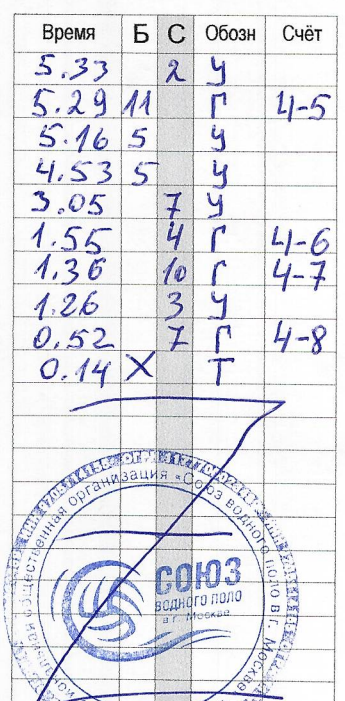 Время Б С Обозн Счёт
5.33 2 У
5.29 11 Г 4-5
5.16 5 У
4.53 5 У
3.05 7 У
1.55 4 Г 4-6
1.36 10 Г 4-7
1.26 3 У
0.52 7 Г 4-8
0.14 X Т
общественная организация «Союз водного поло в г. Москве
СОЮЗ
ВОДНОГО ПОЛО
в г. Москве